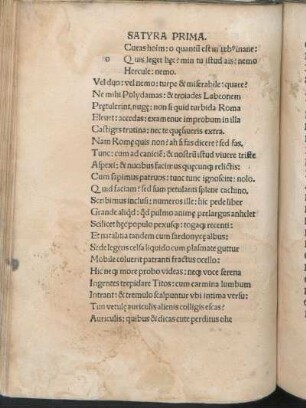 SATYRA PRIMA.
Curas hoīm: o quantū est in rebꝰ inane:
o Quis leget hęc? min tu istud ais: nemo
Hercule: nemo.
Vel duo: vel nemo: turpe & miserabile: quare?
Ne mihi Polydamas: & troiades Labeonem
Prętulerint, nugę: non si quid turbida Roma
Eleuet: accedas: examenue improbum in illa
Castiges trutina: nec te quęsiueris extra.
Nam Romę quis non? ah si fas dicere? sed fas,
Tunc: cum ad caniciē: & nostrū istud viuere triste
Aspexi: & nucibus facimus quęcunqꝫ relictis:
Cum sapimus patruos: tunc tunc ignoscite: nolo.
Quid faciam? sed sum petulanti splene cachino,
Scribimus inclusi: numeros ille: hic pede liber
Grande aliqd: qd pulmo animę pręlargus anhelet
Scilicet hęc populo pexusqꝫ: togaqꝫ recenti:
Et natalitia tandem cum sardonyce albus:
Sede leges celsa liquido cum plasmate guttur
Mobile colueris patranti fractus ocello:
Hic neqꝫ more probo videas: neqꝫ voce serena
Ingentes trepidare Titos: cum carmina lumbum
Intrant: & tremulo scalpuntur vbi intima versu:
Tun vetulę auriculis alienis colligis escas?
Auriculis: quibus & dicas cute perditus ohe